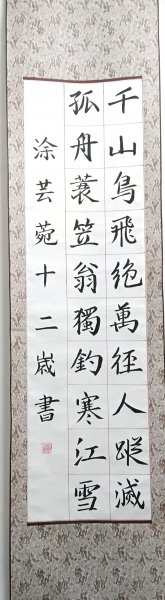 千山鳥飛絕萬徑人蹤滅
孤舟蓑笠翁獨釣寒江雪
涂芸菀十二歲書